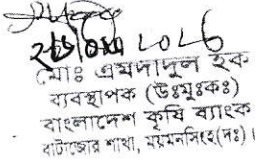 মোঃ এমদাদুল হক
ব্যবস্থাপক (উঃমুঃকঃ)
বাংলাদেশ কৃষি ব্যাংক
বাটাজোর শাখা, ময়মনসিংহ(দঃ)।